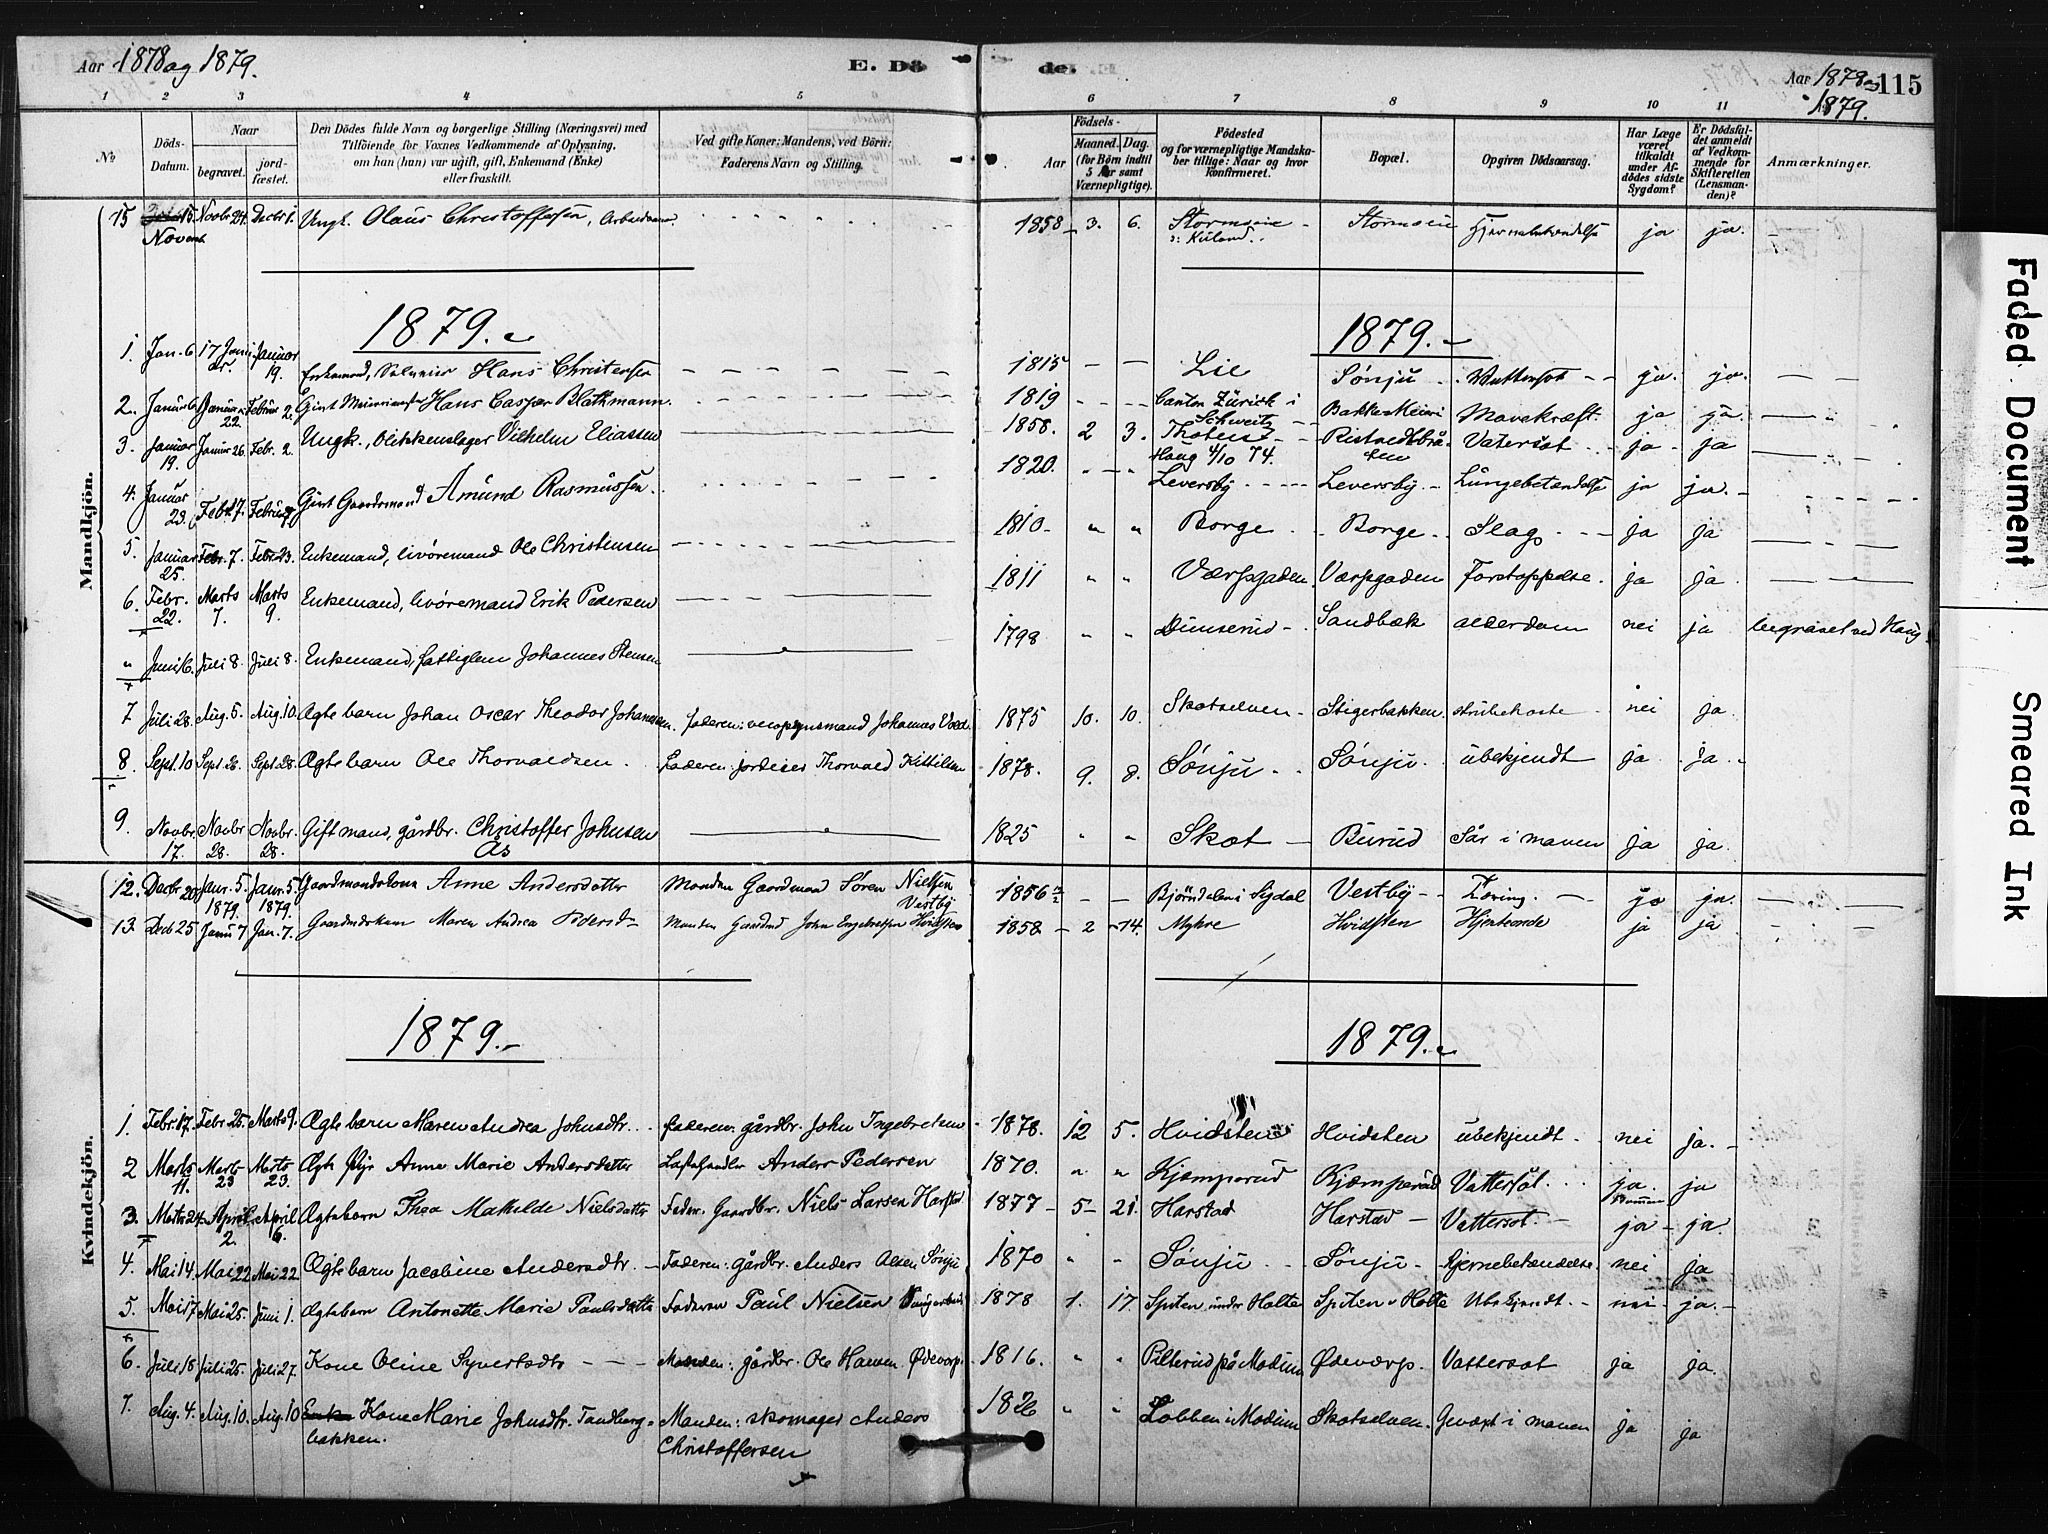 Aar 1878 og 1879.
E. Dö de.
Aar 1878 og 1879.
115
1 2 3 4 5 6 7 8 9 10 11
No
Döds-Datum.
Naar
begravet.
jord-fæstet.
Den Dödes fulde Navn og borgerlige Stilling (Næringsvei) med
Tilföiende for Voxnes Vedkommende af Oplysning,
om han (hun) var ugift, gift, Enkemand (Enke)
eller fraskilt.
Ved gifte Koner: Mandens, ved Börn:
Faderens Navn og Stilling.
Födsels-
Aar
Maaned. Dag.
(for Börn indtil
5 Aar samt
Værnepligtige).
Födested
og for værnepligtige Mandska-
ber tillige: Naar og hvor
Konfirmeret.
Bopæl.
Opgiven Dödsaarsag.
Har Læge
været
tilkaldt
under Af-
dödes sidste
Sygdom?
Er Dödsfal-
det anmeldt
af Vedkom-
mende for
Skifteretten
(Lensman-
den)?
Anmærkninger.
Mandkjön.
15 15 Novemb Novbr 24. Decbr 1. Ungk. Olaus Christoffersen, Arbeidsmand 1858 3. 6. Stormoen Stormoen Hjernebetændelse ja ja.
1879. 1879.
1. Jan. 6 17 Januar Januar 19. Enkemand, Hans Christensen 1815 Lie Sønju Vattersot ja. ja.
2. Januar Januar 22. Februar 2. Gift Meierimester Hans Caspar Blathmann. 1819 Canton Zürich i Schweitz Bakke Meieri Mavekræft ja ja.
3. Januar 19. Januar 26. Febr. 2. Ungk., Blikkenslager Vilhelm Eliassen 1858. 2 3. Thoten Haug 4/10 74. Vatersot ja ja
4. Januar 23. Febr 7. Februar Gift Gaardmand Amund Rasmussen 1820. Leversby Leversby Lungebetændelse ja ja.
5. Januar 25. Febr. 7. Febr 23. Enkemand, livöremand Ole Christensen 1810 " " Borge Borge Slag ja ja
6. Febr. 22. Marts 7. Marts 9. Enkemand, livöremand Erik Pedersen 1811 " " Værpgaden Værpgaden Forstoppelse ja ja
" Juni 16. Juli 8. Juli 8. Enkemand, fattiglem Johannes Stensen 1798 " " Dunserud Sandbæk alderdom nei ja begravet ved Haug
7 Juli 28. Aug. 5. Aug. 10. Ægte barn Johan Oscar Theodor Johannesen. faderen: Johannes 1875 10. 10. Skotselven Stigerbakken strubehoste nei ja.
8. Sept. 10 Sept 26. Sept 28. Ægte barn Ole Thorvaldsen. Faderen: jordeier Thorvald Kittilsen 1878. 9. 8. Sönju Sönju ubekjendt ja ja.
9. Novbr. 17. Novbr 28. Novbr. 28. Gift mand, gårdbr. Christoffer Johnsen Ås 1825 " " Skot Burud Sår i maven ja ja.
Kvindekjön.
12. Decbr 20 Janr. 5. 1879. Janr. 5. 1879. Gaardmandskone Anne Andersdatter Manden Gaardmand Sören Nielsen Vestby 1856 Björndalen i Sigdal Vestby Tæring ja ja.
13. Decb 25 Janu 7 Jan. 7. Gaardmdskone Maren Andrea Pedersd Manden Gaardmd John Engebretsen Hvidsten 1858 2 14. Myhre Hvidsten ja ja
1879. 1879.
1. Febr. 17. Febr. 25. Marts 9. Ægte barn Maren Andrea Johnsdtr. faderen: gårdbr. John Ingebretsen 1878. 12 5. Hvidsten Hvidsten ubekjendt nei ja.
2 Marts 11. Marts 23 Marts 23. Ægte Anne Marie Andersdatter Anders Pedersen 1870. " " Kjæmperud Kjæmperud Vattersot ja. ja
3. Marts 24. April 2. April 6. Ægte barn Thea Mathilde Nielsdatter Fader. Gaardbr. Niels Larsen Harstad 1877 5 21. Harstad Harstad Vattersot ja ja.
4. Mai 14. Mai 22 Mai 22 Ægte barn Jacobine Andersdtr. Faderen: gårdbr. Anders Olsen Sönju 1870 " " Sønju Sønju Hjernebetændelse nei ja
5. Mai 17 Mai 25. Juni 1. Ægtebarn Antonette Marie Paulsdatter Faderen Paul Nielsen 1878 1. 17 Spiten under Holte Spiten u Holte Ubekjendt nei ja.
6. Juli 18 Juli 25. Juli 27. Kone Oline Syvertsdtr Manden: gårdbr. Ole Hansen Ødevorp 1816. " " Pilterud på Modum Ødeværp Vattersot ja ja.
7. Aug. 4. Aug. 10. Aug. 10 Enke Kone Marie Johnsdtr. Tandberg-bakken. Manden: skomager Anders Christoffersen 1826 " " Lobben i Modum Skotselven. Gevæxt i maven ja ja
Faded Document
Smeared Ink